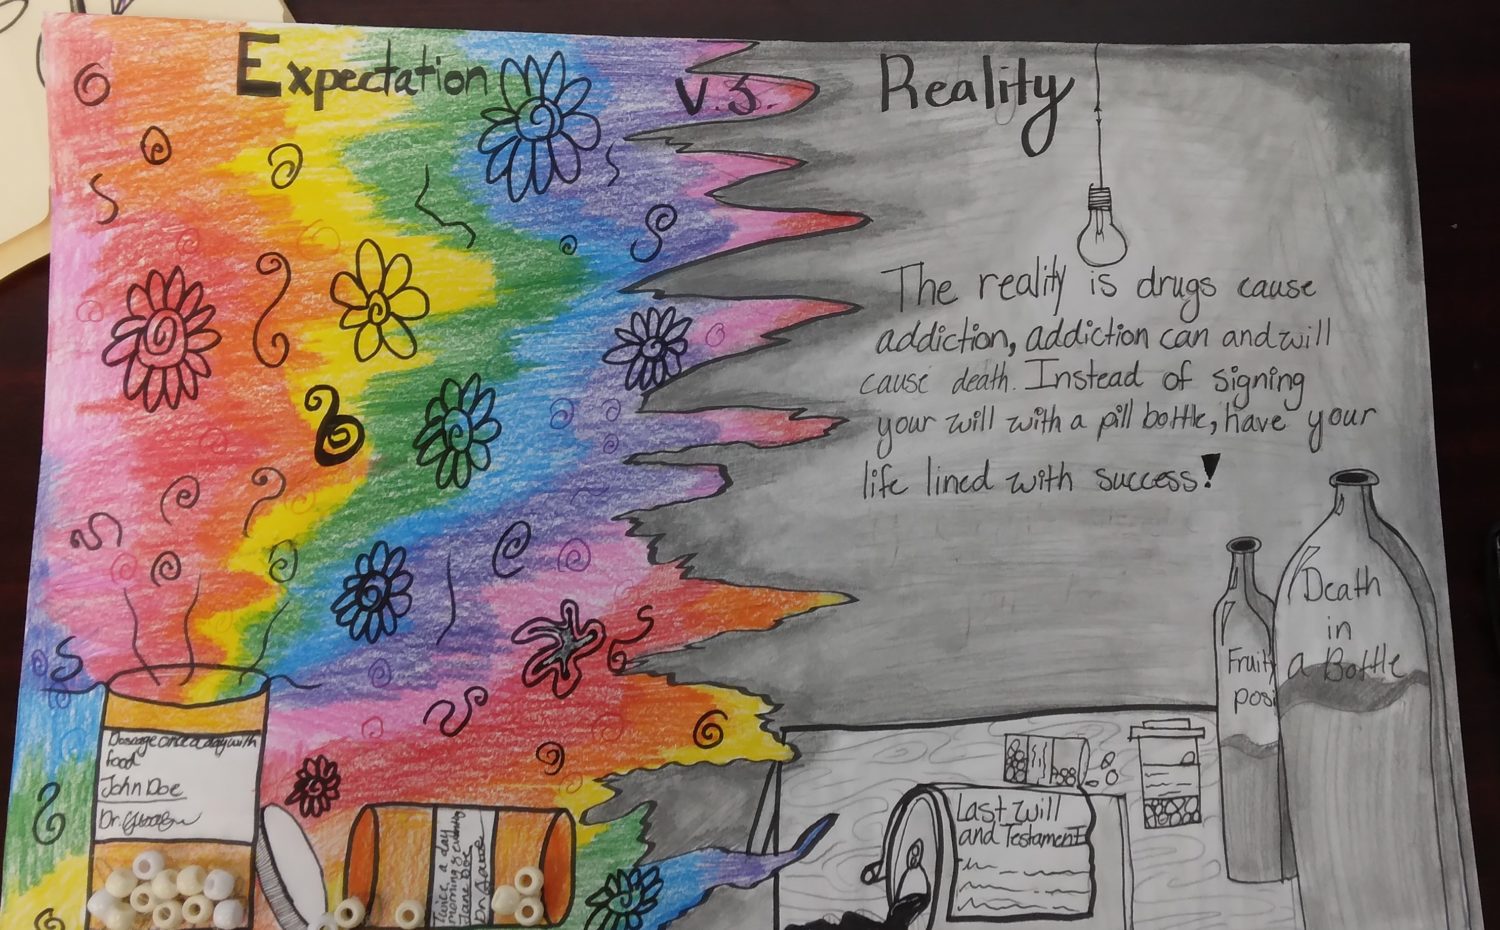 Expectation v.s. Reality
The reality is drugs cause
addiction, addiction can and will
cause death. Instead of signing
your will with a pill bottle, have your
life lined with success!
Death
in
a Bottle
Fruity
posi
Dosage once a day with
food
John Doe
Dr.
Twice a day
morning & evening
Jane Doe
Dr.
Last Will
and Testament